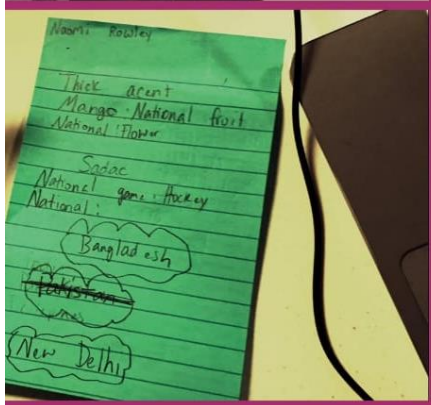 Naomi Rowley
Thick acent
Mango : National fruit
National : Flower
Sadac
National game : Hockey
National :
Bangladesh
Pakistan
New Delhi